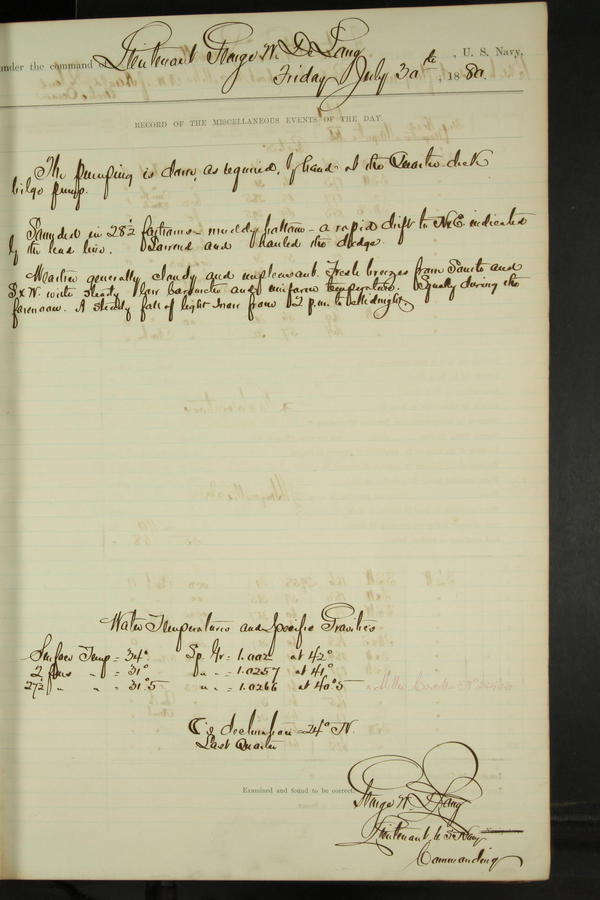 under the command of Lieutenant George W. De Long, U. S. Navy,
Friday July 30th, 1880.
RECORD OF THE MISCELLANEOUS EVENTS OF THE DAY.
The pumping is done, as required, by hand at the Quarter-deck
bilge pump.
Sounded in 28½ fathoms - muddy bottom - a rapid drift to N.E. indicated
by the lead line. Lowered and hauled the dredge.
Weather generally cloudy and unpleasant. Fresh breezes from South and
S x W. with steady barometer and uniform temperature. Squally during the
forenoon. A steady fall of light snow from 12 p.m. to Midnight.
Water Temperatures and Specific Gravities
Surface Temp = 34° Sp. Gr = 1.002 at 42°
2 fms " = 31° " " = 1.0257 at 41°
27½ " " = 31°.5 " " = 1.0266 at 40°.5
☾'s declination = 24° N.
Last Quarter
Examined and found to be correct.
George W. De Long
Lieutenant U. S. Navy
Commanding